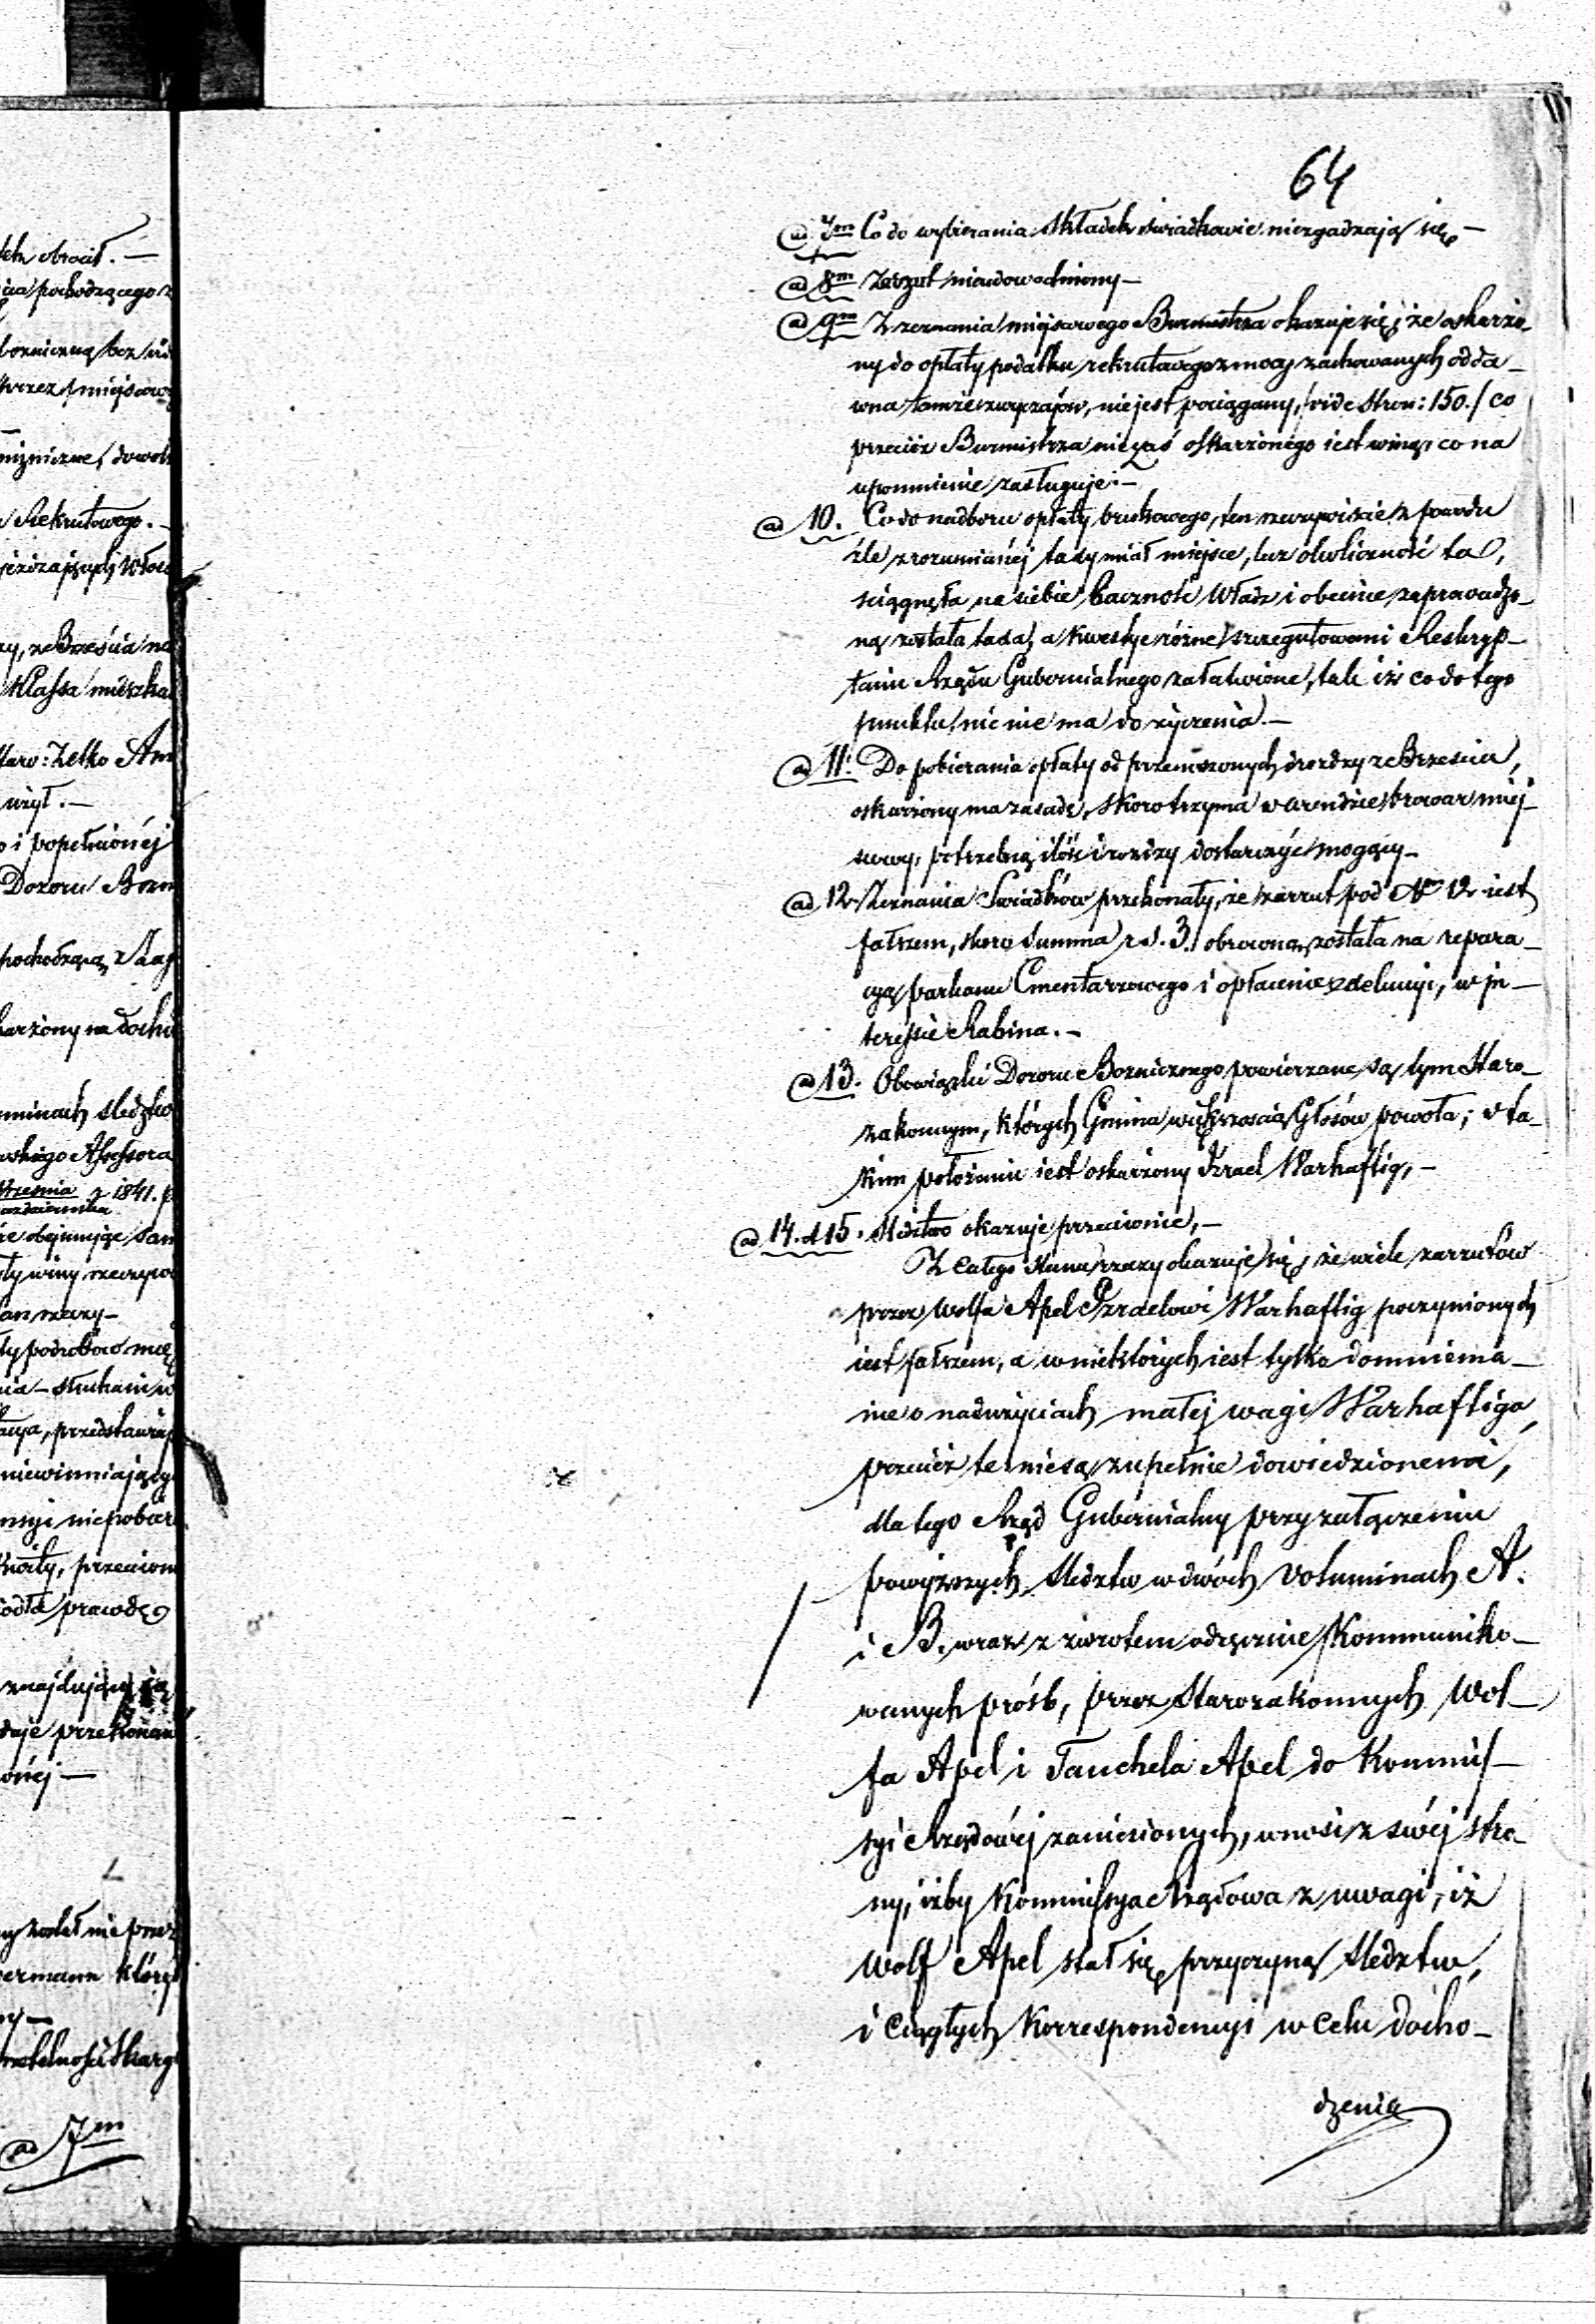 64
ad 7m Co do wybierania składek świadkowie niezgadzają się,—
ad 8m Zarzut nieudowodniony—
ad 9m Z zeznania miejscowego Burmistrza okazuje się, że oskarżo-
ny do opłaty podatku rekrutowego z mocy zachowanych odda-
wna tamże zwyczajów, nie jest pociągany, /vide stron: 150./ co
przecież Burmistrza nie zaś oskarżonego jest winą, co na
upomnienie zasługuje.—
ad 10. Co do nadboru opłaty brukowego, ten rzeczywiście z powodu
źle zrozumianéj taxy miał miejsce, lecz okoliczność ta,
ściągnęła na siebie baczność Władz i obecnie zaprowadzo-
ną została taxa, a kwestye różne szczegułowemi Reskryp-
tami Rządu Gubernialnego załatwione, tak iż co do tego
punktu nic nie ma do życzenia.—
ad 11. Do pobierania opłaty od przewożonych drożdży z Brześcia,
oskarżony ma zasadę, skoro trzyma w arendzie browar miej-
scowy, potrzebną ilość drożdży dostarczyć mogący—
ad 12 Zeznania Swiadków przekonały, że zarzut pod Nr 12 jest
fałszem, skoro summa rs. 3. obrócona została na repara-
cyą parkanu Cmentarzowego i opłacenie zdelucyi, w in-
teressie Rabina.—
ad 13. Obowiązki Dozoru Bożniczego powierzane są tym Staro-
zakonnym, których Gmina większością Głosów powoła; w ta-
kim położeniu jest oskarżony Izrael Warhaftig,—
ad 14. et 15. Śledztwo okazuje przeciwnie,—
Z całego stanu rzeczy okazuje się, że wiele zarzutów
przez Wolfa Apel Izraelowi Warhaftig poczynionych
jest fałszem, a w niektórych jest tylko domniema-
nie o nadużyciach małéj wagi Warhaftiga,
przecież te nie są zupełnie dowiedzionemi,
dla tego Rząd Gubernialny przy załączeniu
powyższych śledztw w dwóch voluminach A.
i B. wraz z zwrotem odręcznie kommuniko-
wanych próśb, przez Starozakonnych Wol-
fa Apel i Tauchela Apel do Kommis-
syi Rządowéj zaniesionych, wnosi z swéj stro-
ny, iżby Kommissya Rządowa z uwagi, iż
Wolf Apel stał się przyczyną śledztw,
i ciągłych korrespondencyi w celu docho-
dzenia
ad 7m